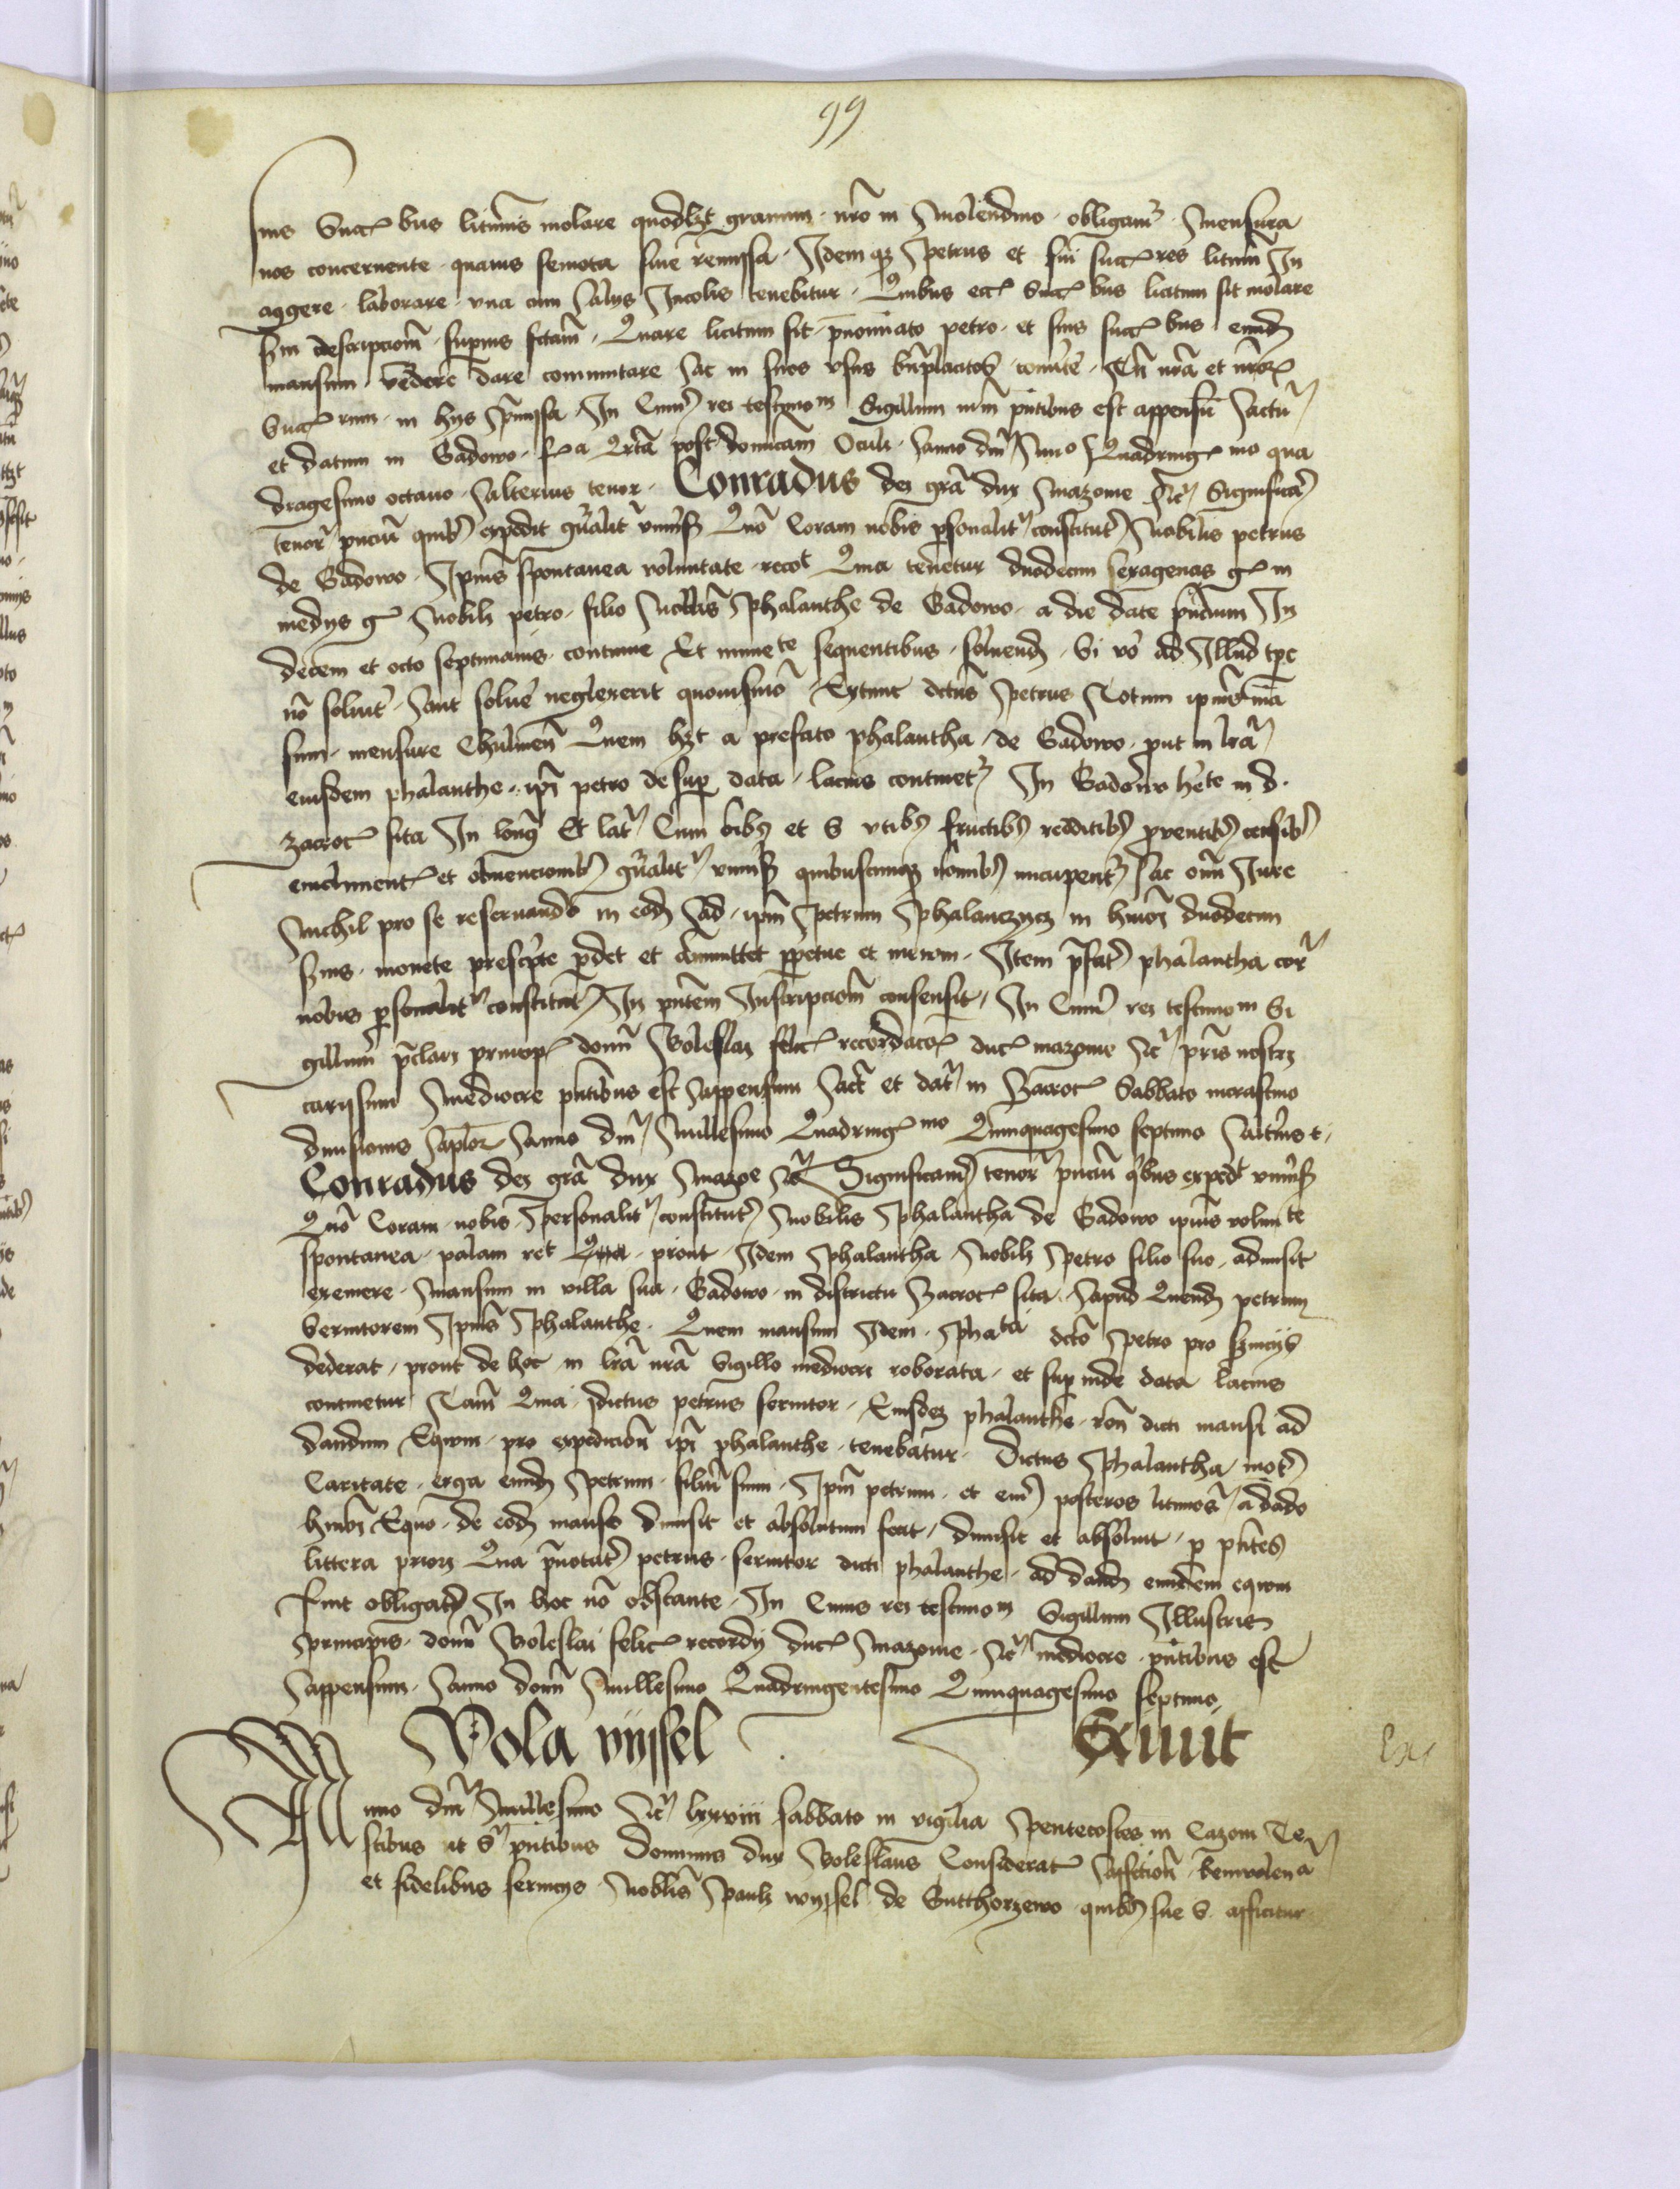 99
suis Succ bus litimis molare quodlzt granum nro in Molendino obligam Mensura
nos concernente quauis semota siue remissa Idem qz Petrus et sui succ res litimi In
aggere laborare vna cum Alys Incolis tenebitur Quibus ecc Succ bus licitum sit molare
scdm descripcionem superius sctam Quare licitum sit pnominato petro et suis succ bus eundem
mansum vendere dare commutare Ac in suos vsus bnplacitos conuertere nra et nror
Succ rum in hys pmissa In Cuius rei testimo m Sigillum nrm pntibus est appensum Actum
et datum in Gadowo f a Qrta post dominicam Oculi Anno dni Mmo Quadring mo qua
dragesimo octauo Alterius tenor Conradus dei gra dux Mazouie etc Significam
tenor pncium quibus expedit gnalit vniuersis Quo Coram nobis psonalit constitutus Nobilis petrus
de Gadowo Ipius spontanea voluntate recot Quia tenetur duodecim sexagenas g in
medys g Nobili petro filio Nobilis Phalanthe de Gadowo a die date pncium In
decem et octo septimanis continue Et inme te sequentibus soluend Si vo ad Illud tpe
no soluit Aut solue neglexerit quouismo Extunc dctus Petrus Totum ipius man
sum mensure Chulmen Quem hzt a prefato phalantha de Gadowo put in lra
eiusdem phalanthe ipi petro de sup data lacius continet In Gadowo hete in d
Zacroc sita In long Et lat Cum oibus et s vtibus fructibus redditibus prouentibus censibus
emolument et obuencionibus gnalit vniuersis quibuscunqz noibus nuncupent Ac omi Iure
Nichil pro se reseruando in eod Ad ipm Petrum Phalanczycz in huioi duodecim
sxnis monete prescpte pdet et dimittet ppetue et in ewm Item pfatus phalantha cor
nobis psonalit constitut In pntem Inscripcionem consensit In Cuius rei testimo m Si
gillum pclari princip domi Boleslai felic recordacio duc mazouie etc pris nostri
carissimi Mediocre pntibus est Appensum Act et dat in Zacroc Sabbato incrastino
diuisionis Aplor Anno dni Millesimo Quadring mo Quinquagesimo septimo Altius t
Conradus dei gra dux Mazoe etc Significam tenor pncium qbus expedt vniuersis
Quo Coram nobis Personalit constitutus Nobilis Phalantha de Gadowo ipius volun te
spontanea palam ret prout Idem Phalantha Nobili Petro filio suo admisit
exemere Mansum in villa sua Gadowo in districtu Zacroc sita Apud Quend petrum
Seruitorem Ipius Phalanthe Quem mansum Idem Pha ta dcto Petro pro seruicys
dederat prout de hoc in lra nra Sigillo mediocri roborata et sup inde data lacius
continetur Tam Quia dictus petrus seruitor Eiusdez phalanthe ron dicti mansi ad
dandum Eqwm pro expedicion ipi phalanthe tenebatur Dictus Phalantha motus
Caritate erga eund Petrum filium suum Ipm petrum et eius posteros litimos a dado
huioi Equo de eod manso dimisit et absolutum fecit dimisit et absoluit p pntes
littera priori Qua pnotatus petrus seruitor dicti phalanthe ad dand eiudem eqwm
fuit obligatus In hoc no obstante In Cuius rei testimo m Sigillum Illustris
Principis domi Boleslai felic recordy duc Mazouie etc mediocre pntibus est
Appensum Anno domi Millesimo Quadringentesimo Quinquagesimo septimo
Wola vyssel Exiuit
Anno dni Millesimo etc lxxviii sabbato in vigilia Pentecostes in Cazom Te
stibus ut S pntibus Dominus dux Boleslaus Considerat Affection beniuolen a
et fidelibus seruicys Nobilis Pauli wyssel de Gutthorzewo quibus sue S afficitur